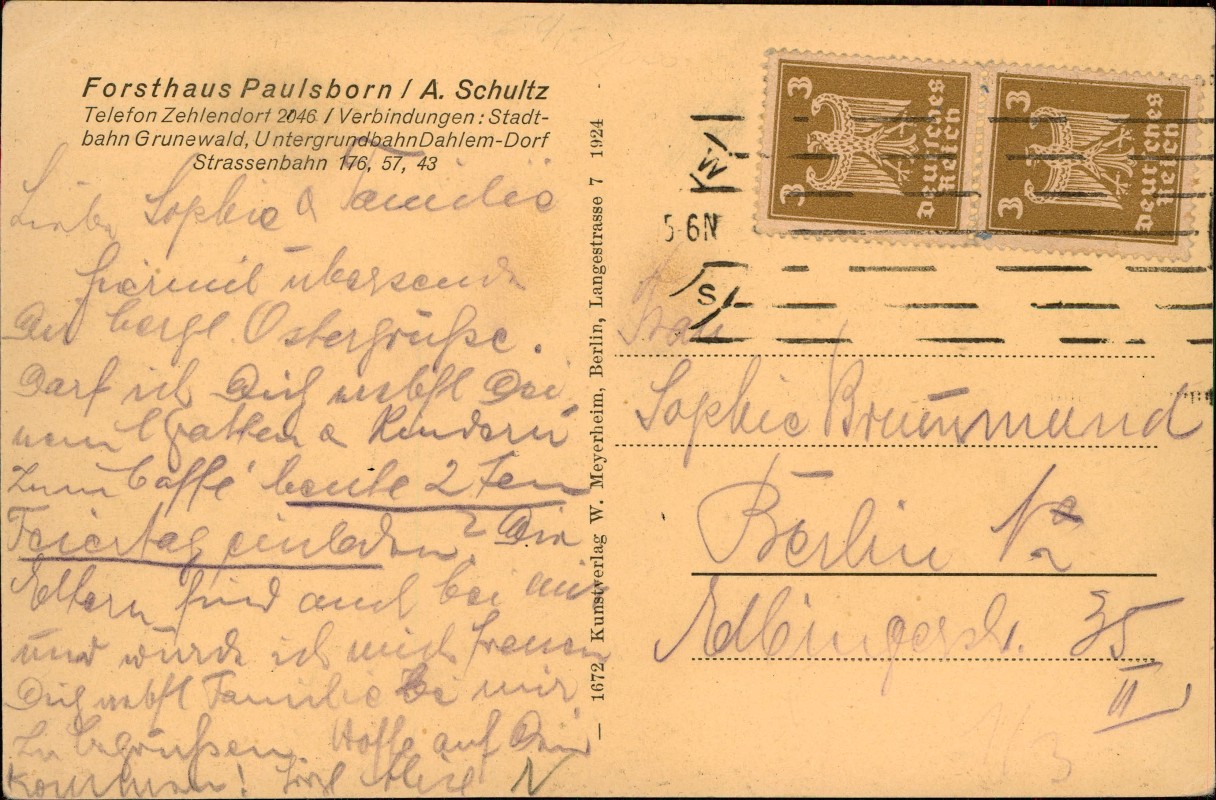 Forsthaus Paulsborn / A. Schultz
Telefon Zehlendorf 2046 / Verbindungen: Stadt-
bahn Grunewald, Untergrundbahn Dahlem-Dorf
Strassenbahn 176, 57, 43
Liebe Sophie & Familie
hiermit übersende
Dir herzl. Ostergrüße.
Darf ich Dich nebst Dei
nem Gatten & Kindern
zum Caffé heute 2ten
Feiertag einladen? Die
Eltern sind auch bei mir
und würde ich mich freuen
Dich nebst Familie bei mir
zu begrüßen. Hoffe auf Dein
Kommen!
— 1672 Kunstverlag W. Meyerheim, Berlin, Langestrasse 7 1924
3 3 Deutsches Reich
3 3 Deutsches Reich
W
5-6N
S
Frau
Sophie
Berlin
Elbingerstr. 35
II